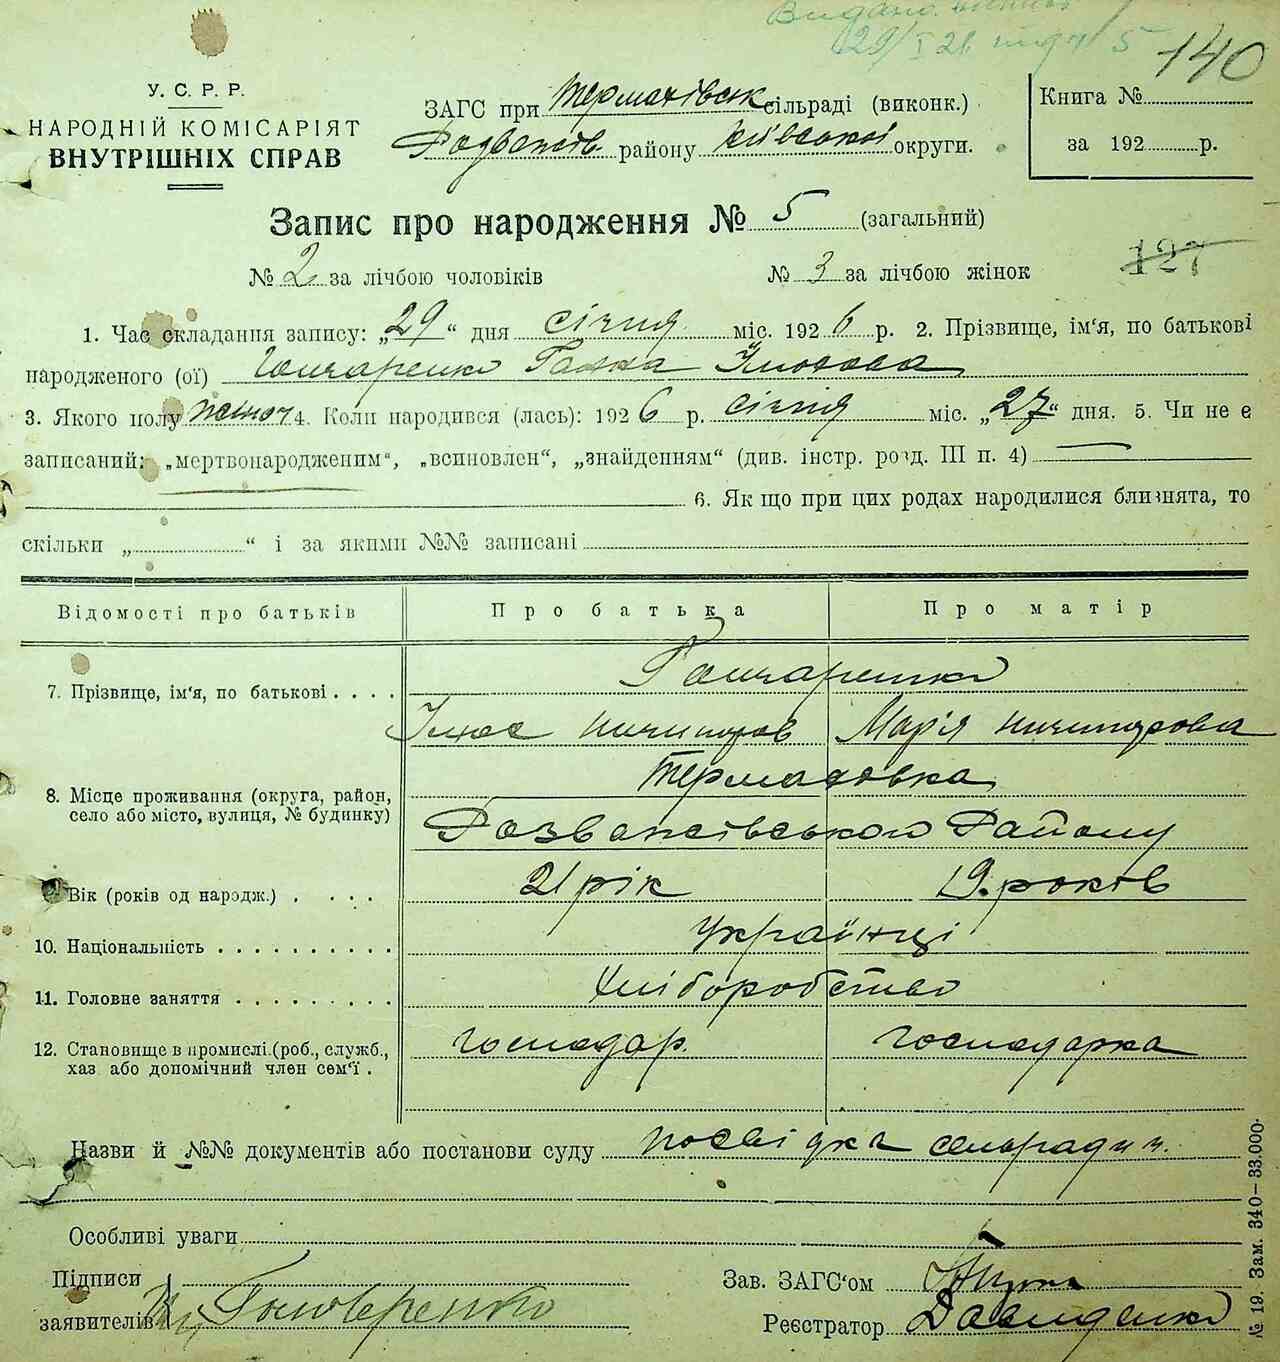 Видано
29/I 26 під ч 5
140
У. С. Р. Р.
НАРОДНІЙ КОМІСАРІЯТ
ВНУТРІШНІХ СПРАВ
ЗАГС при Термахівськ сільраді (виконк.)
Розважів району Київської округи.
Книга №
за 192 р.
Запис про народження № 5 (загальний)
№ 2 за лічбою чоловіків № 3 за лічбою жінок
127
1. Час складання запису: „29“ дня січня міс. 1926 р. 2. Прізвище, ім'я, по батькові
народженого (ої) Гончаренко Ганна Ількова
3. Якого полу жіноч 4. Коли народився (лась): 1926 р. січня міс. „27“ дня. 5. Чи не є
записаний: „мертвонародженим“, „всиновлен“, „знайденням“ (див. інстр. розд. III п. 4) —
6. Як що при цих родах народилися близнята, то
скільки „ “ і за якими №№ записані
Відомості про батьків Про батька Про матір
7. Прізвище, ім'я, по батькові . . . . Гончаренко
Ничипоров Мар'я Ничипорова
8. Місце проживання (округа, район, село або місто, вулиця, № будинку) Термаховка
Розважівського Району
Вік (років од народж.) . . . . 21 рік 19. років
10. Національність . . . . . . . . . . Українці
11. Головне заняття . . . . . . . . . Хліборобство
12. Становище в промислі (роб., служб., Господар. Господарка
хаз або допомічний член сем'ї .
Назви й №№ документів або постанови суду посвідка сельради
Особливі уваги
Підписи
заявителів Гончаренко
Зав. ЗАГС'ом
Реєстратор Давиденко
№ 19. Зам. 340–33.000.